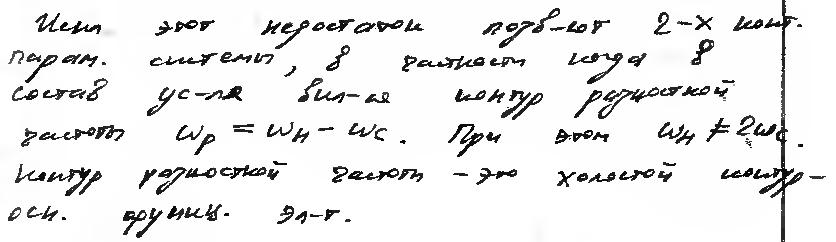 Искл этот недостаток позв-ют 2-х конт.
парам. системы, в частности когда в
состав ус-ля вкл-ся контур разностной
частоты ωр = ωн − ωс. При этом ωн ≠ 2ωс.
Контур разностной частоты - это холостой контур-
осн. функц. эл-т.